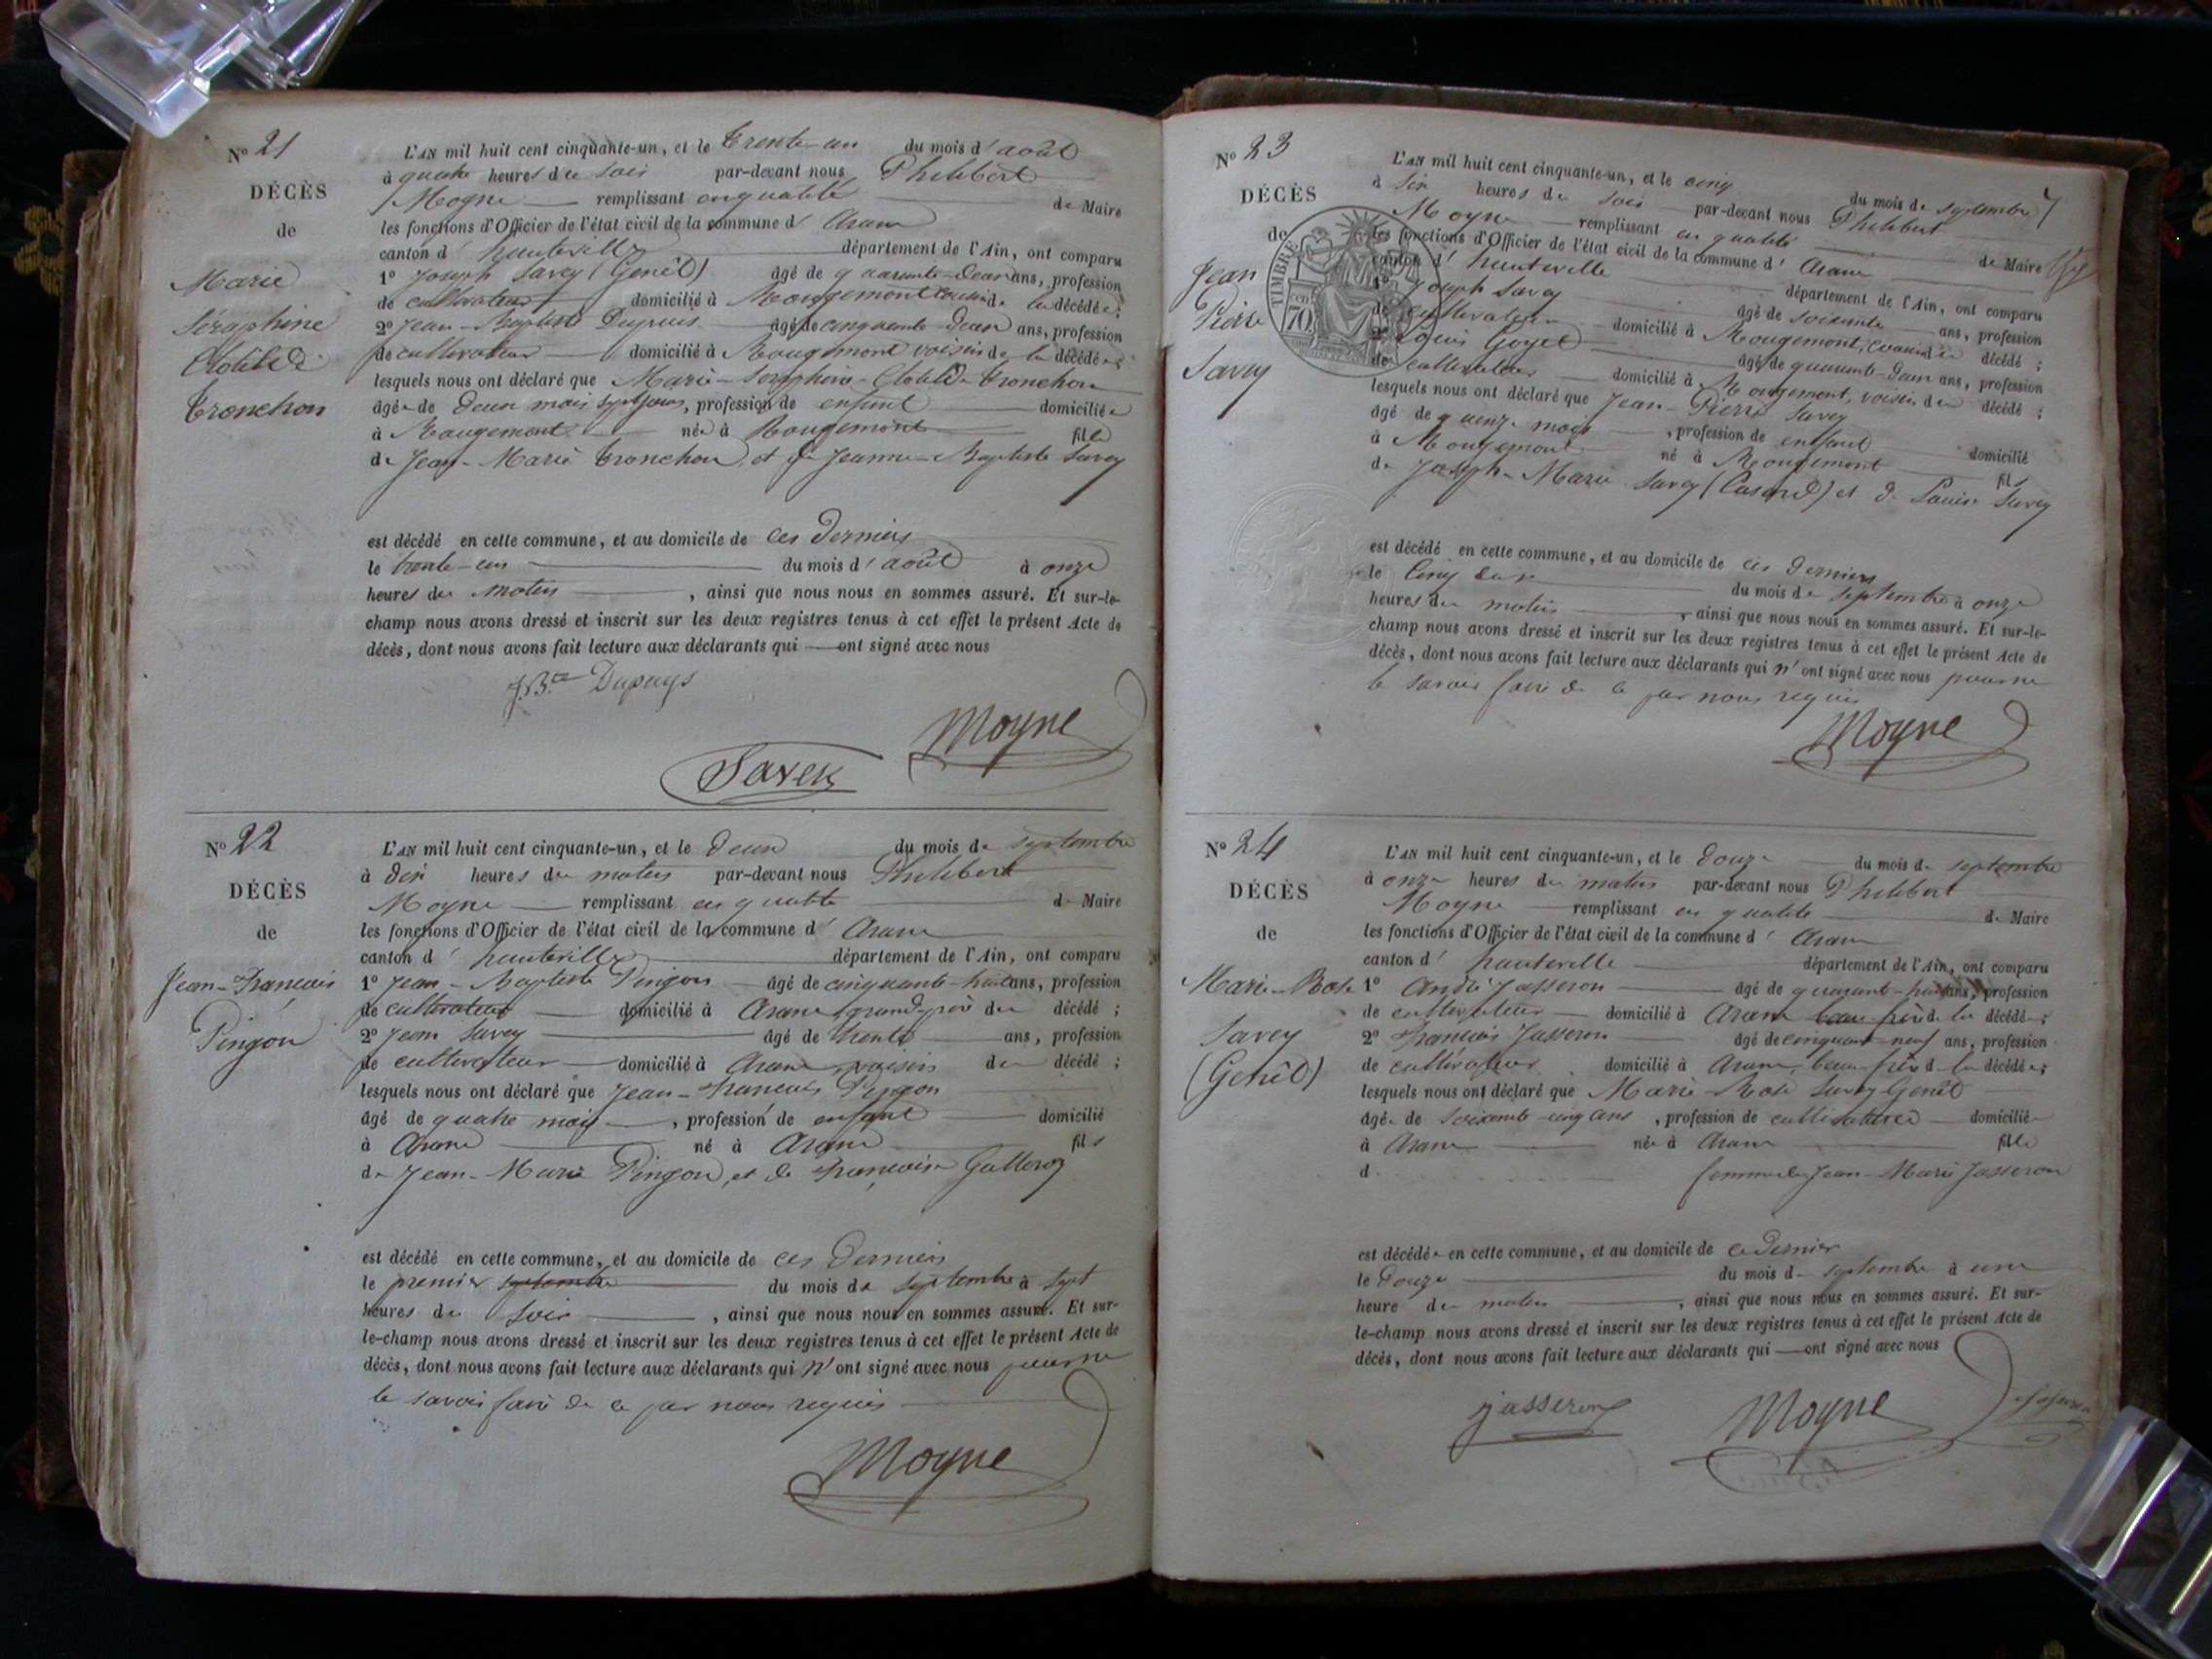 N° 21
DÉCÈS
de
Marie
Séraphine
Clotilde
Tronchon
L'AN mil huit cent cinquante-un, et le trente-un du mois d'août
à quatre heures du soir par-devant nous Philibert
Moyne remplissant en qualité de Maire
les fonctions d'Officier de l'état civil de la commune d'Aranc
canton d'hauteville département de l'Ain, ont comparu
1° Joseph Savey (Genêt) âgé de quarante-deux ans, profession
de cultivateur domicilié à Rougemont cousin de la décédée;
2° Jean-Baptiste Dupuis âgé de cinquante-deux ans, profession
de cultivateur domicilié à Rougemont voisin de la décédée;
lesquels nous ont déclaré que Marie-Séraphine-Clotilde Tronchon
âgée de deux mois sept jours, profession de enfant domiciliée
à Rougemont née à Rougemont fille
de Jean-Marie Tronchon, et de Jeanne-Baptiste Savey
est décédé en cette commune, et au domicile de ces derniers
le trente-un du mois d'août à onze
heures du matin, ainsi que nous nous en sommes assuré. Et sur-le-
champ nous avons dressé et inscrit sur les deux registres tenus à cet effet le présent Acte de
décès, dont nous avons fait lecture aux déclarants qui ont signé avec nous
J.B.te Dupuys
Moyne
Savey
N° 22
DÉCÈS
de
Jean-François
Pingon
L'AN mil huit cent cinquante-un, et le deux du mois de septembre
à dix heures du matin par-devant nous Philibert
Moyne remplissant en qualité de Maire
les fonctions d'Officier de l'état civil de la commune d'Aranc
canton d'hauteville département de l'Ain, ont comparu
1° Jean-Baptiste Pingon âgé de cinquante-huit ans, profession
de cultivateur domicilié à Aranc grand-père du décédé;
2° Jean Savey âgé de trente ans, profession
de cultivateur domicilié à Aranc voisin du décédé;
lesquels nous ont déclaré que Jean-François Pingon
âgé de quatre mois, profession de enfant domicilié
à Aranc né à Aranc fils
de Jean-Marie Pingon, et de Françoise
est décédé en cette commune, et au domicile de ces derniers
le premier septembre du mois de septembre à sept
heures du soir, ainsi que nous nous en sommes assuré. Et sur-
le-champ nous avons dressé et inscrit sur les deux registres tenus à cet effet le présent Acte de
décès, dont nous avons fait lecture aux déclarants qui n'ont signé avec nous pour ne
le savoir faire de ce par nous requis
Moyne
N° 23
DÉCÈS
de
Jean
Pierre
Savey
TIMBRE
70
L'AN mil huit cent cinquante-un, et le cinq du mois de septembre
à six heures du soir par-devant nous Philibert
Moyne remplissant en qualité de Maire
les fonctions d'Officier de l'état civil de la commune d'Aranc
canton d'hauteville département de l'Ain, ont comparu
1° Joseph Savey âgé de soixante ans, profession
de cultivateur domicilié à Rougemont, cousin du décédé;
2° Louis Goyet âgé de quarante-deux ans, profession
de cultivateur domicilié à Rougemont, voisin du décédé;
lesquels nous ont déclaré que Jean-Pierre Savey
âgé de quinze mois, profession de enfant domicilié
à Rougemont né à Rougemont fils
de Joseph-Marie Savey et de Louise Savey
est décédé en cette commune, et au domicile de ces derniers
le Cinq du mois de septembre à onze
heures du matin, ainsi que nous nous en sommes assuré. Et sur-le-
champ nous avons dressé et inscrit sur les deux registres tenus à cet effet le présent Acte de
décès, dont nous avons fait lecture aux déclarants qui n'ont signé avec nous pour ne
le savoir faire de ce par nous requis
Moyne
N° 24
DÉCÈS
de
Marie-Rose
Savey
(Genêt)
L'AN mil huit cent cinquante-un, et le douze du mois de septembre
à onze heures du matin par-devant nous Philibert
Moyne remplissant en qualité de Maire
les fonctions d'Officier de l'état civil de la commune d'Aranc
canton d'hauteville département de l'Ain, ont comparu
1° André Jasseron âgé de quarante-huit ans, profession
de cultivateur domicilié à Aranc beau-frère de la décédée;
2° François Jasseron âgé de cinquante-neuf ans, profession
de cultivateur domicilié à Aranc, beau-frère de la décédée;
lesquels nous ont déclaré que Marie-Rose Savey-Genêt
âgée de soixante-cinq ans, profession de cultivatrice domiciliée
à Aranc née à Aranc fille
d femme de Jean-Marie Jasseron
est décédée en cette commune, et au domicile de ce dernier
le douze du mois de septembre à une
heure du matin, ainsi que nous nous en sommes assuré. Et sur-
le-champ nous avons dressé et inscrit sur les deux registres tenus à cet effet le présent Acte de
décès, dont nous avons fait lecture aux déclarants qui ont signé avec nous
jasseron
Moyne